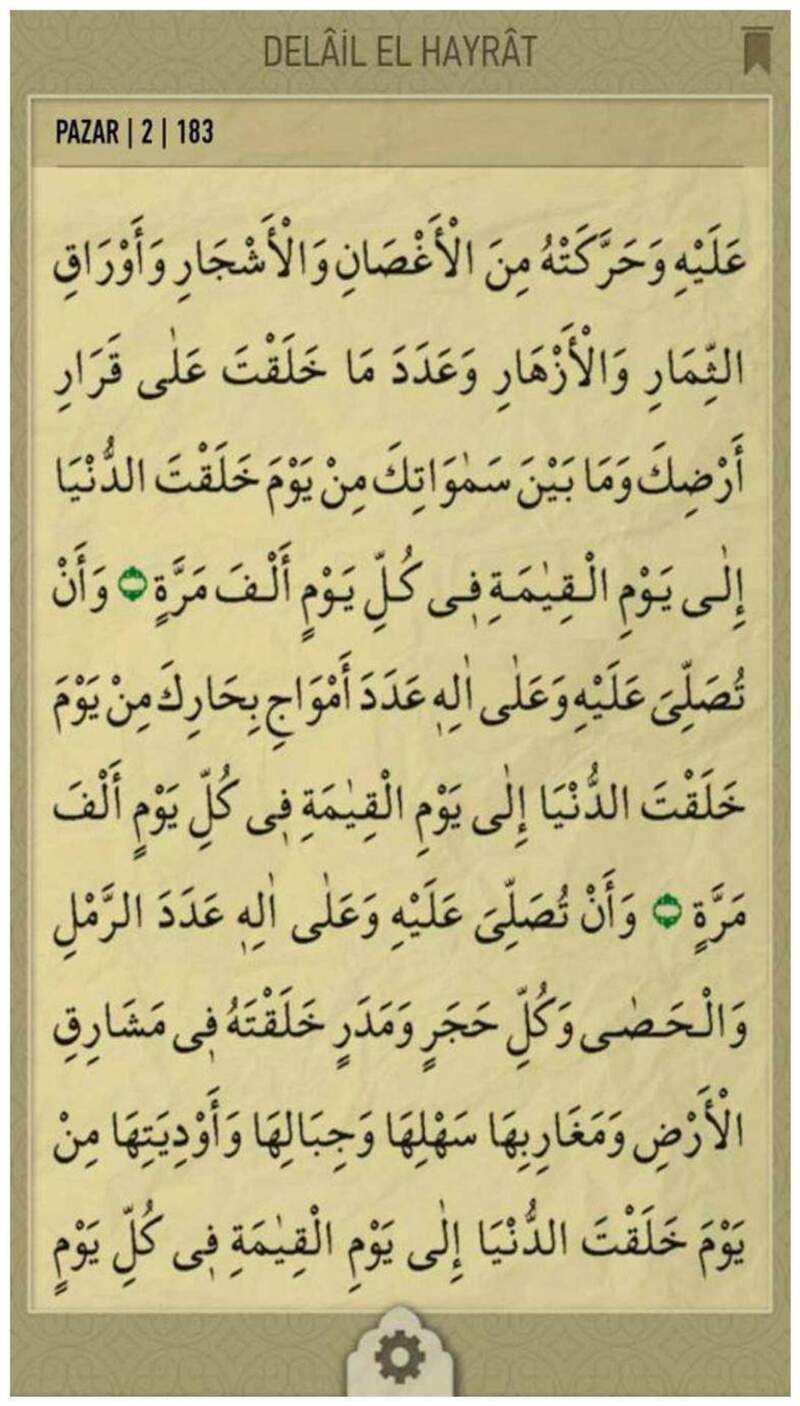 DELÂİL EL HAYRÂT
PAZAR | 2 | 183
عَلَيْهِ وَحَرَّكَتْهُ مِنَ الْأَغْصَانِ وَالْأَشْجَارِ وَأَوْرَاقِ
الثِّمَارِ وَالْأَزْهَارِ وَعَدَدَ مَا خَلَقْتَ عَلٰى قَرَارِ
أَرْضِكَ وَمَا بَيْنَ سَمٰوَاتِكَ مِنْ يَوْمَ خَلَقْتَ الدُّنْيَا
إِلٰى يَوْمِ الْقِيٰمَةِ فٖى كُلِّ يَوْمٍ أَلْفَ مَرَّةٍ وَأَنْ
تُصَلِّىَ عَلَيْهِ وَعَلٰى اٰلِهٖ عَدَدَ أَمْوَاجِ بِحَارِكَ مِنْ يَوْمَ
خَلَقْتَ الدُّنْيَا إِلٰى يَوْمِ الْقِيٰمَةِ فٖى كُلِّ يَوْمٍ أَلْفَ
مَرَّةٍ وَأَنْ تُصَلِّىَ عَلَيْهِ وَعَلٰى اٰلِهٖ عَدَدَ الرَّمْلِ
وَالْحَصٰى وَكُلِّ حَجَرٍ وَمَدَرٍ خَلَقْتَهُ فٖى مَشَارِقِ
الْأَرْضِ وَمَغَارِبِهَا سَهْلِهَا وَجِبَالِهَا وَأَوْدِيَتِهَا مِنْ
يَوْمَ خَلَقْتَ الدُّنْيَا إِلٰى يَوْمِ الْقِيٰمَةِ فٖى كُلِّ يَوْمٍ